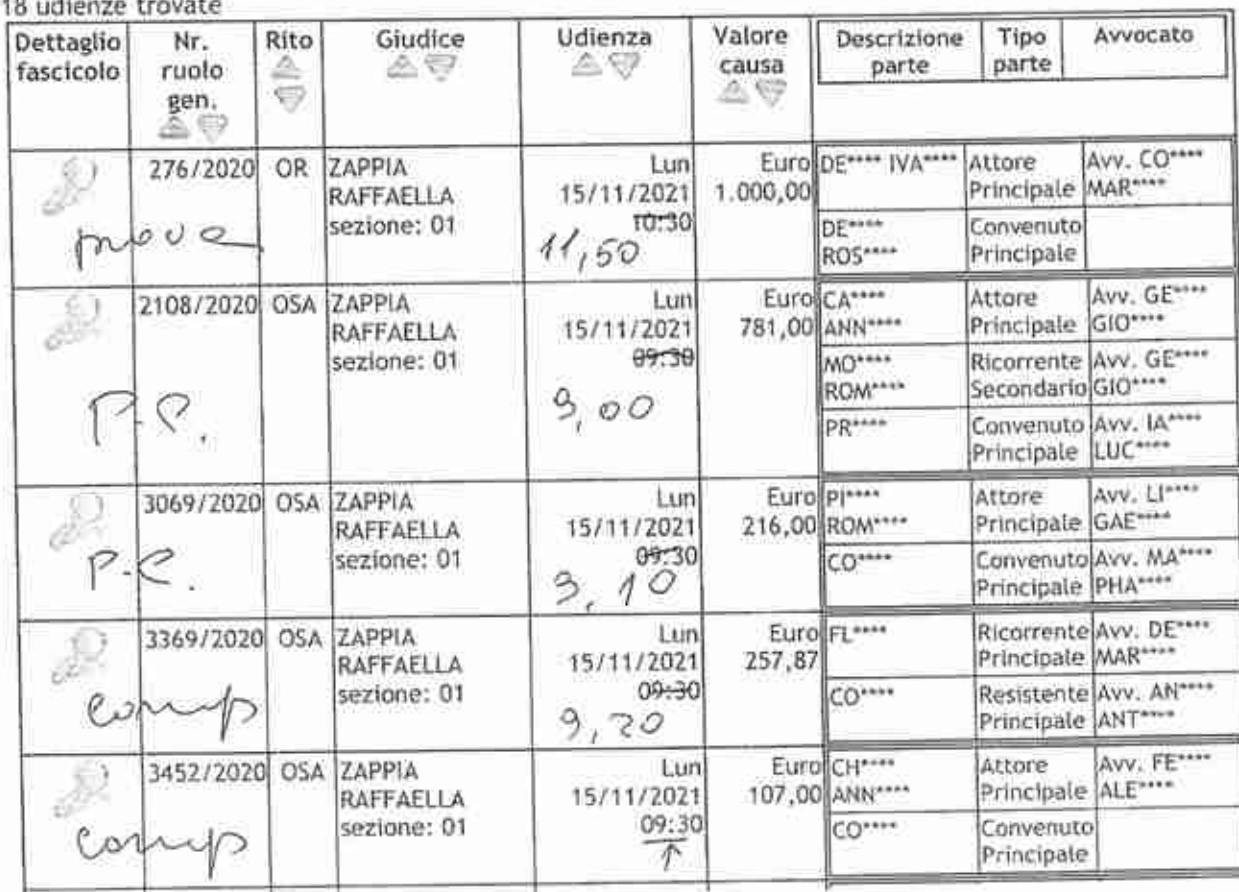 18 udienze trovate
Dettaglio fascicolo | Nr. ruolo gen. | Rito | Giudice | Udienza | Valore causa | Descrizione parte | Tipo parte | Avvocato
276/2020 OR ZAPPIA RAFFAELLA sezione: 01 Lun 15/11/2021 10:30 Euro 1.000,00
prova 11,50
DE**** IVA**** Attore Principale Avv. CO**** MAR****
DE**** ROS**** Convenuto Principale
2108/2020 OSA ZAPPIA RAFFAELLA sezione: 01 Lun 15/11/2021 09:30 Euro 781,00
P.C. 9,00
CA**** ANN**** Attore Principale Avv. GE**** GIO****
MO**** ROM**** Ricorrente Secondario Avv. GE**** GIO****
PR**** Convenuto Principale Avv. IA**** LUC****
3069/2020 OSA ZAPPIA RAFFAELLA sezione: 01 Lun 15/11/2021 09:30 Euro 216,00
P.C. 9,10
PI**** ROM**** Attore Principale Avv. LI**** GAE****
CO**** Convenuto Principale Avv. MA**** PHA****
3369/2020 OSA ZAPPIA RAFFAELLA sezione: 01 Lun 15/11/2021 09:30 Euro 257,87
comp 9,20
FL**** Ricorrente Principale Avv. DE**** MAR****
CO**** Resistente Principale Avv. AN**** ANT****
3452/2020 OSA ZAPPIA RAFFAELLA sezione: 01 Lun 15/11/2021 09:30 Euro 107,00
comp
CH**** ANN**** Attore Principale Avv. FE**** ALE****
CO**** Convenuto Principale